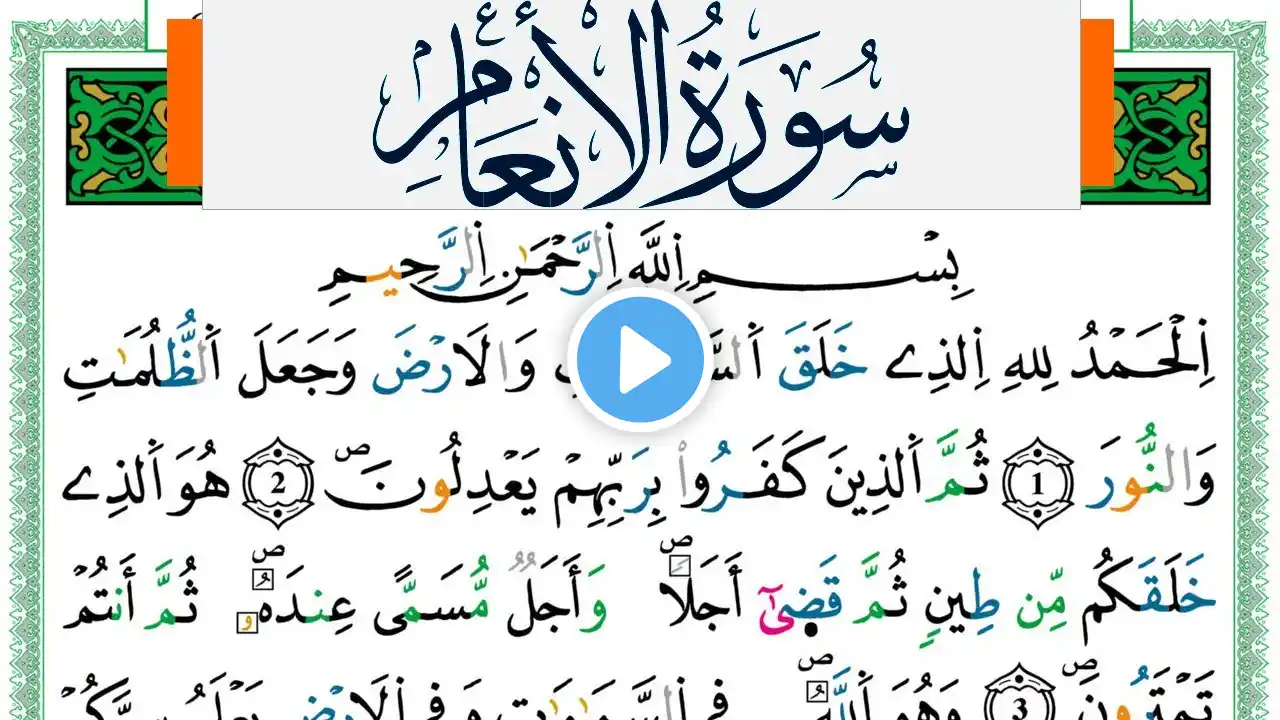 سُورَةُ الأَنْعَامِ
بِسْمِ اِللَّهِ اِلرَّحْمَٰنِ اِلرَّحِيمِ
اِلْحَمْدُ لِلهِ اِلذِے خَلَقَ وَالَارْضَ وَجَعَلَ اَلظُّلُمَٰتِ
وَالنُّورَ 1 ثُمَّ اَلذِينَ كَفَرُواْ بِرَبِّهِمْ يَعْدِلُونَ ص 2 هُوَ اَلذِے
خَلَقَكُم مِّن طِينٍ ثُمَّ قَضَىٰٓ أَجَلًا ص وَأَجَلٌ مُّسَمًّى عِندَهُۥ ص ثُمَّ أَنتُمْ
تَمْتَرُونَ ص 3 وَهُوَ اَللَّهُ ص فِے اِلسَّمَٰوَٰتِ وَفِے اِلَارْضِ يَعْلَمُ سِرَّكُمْ